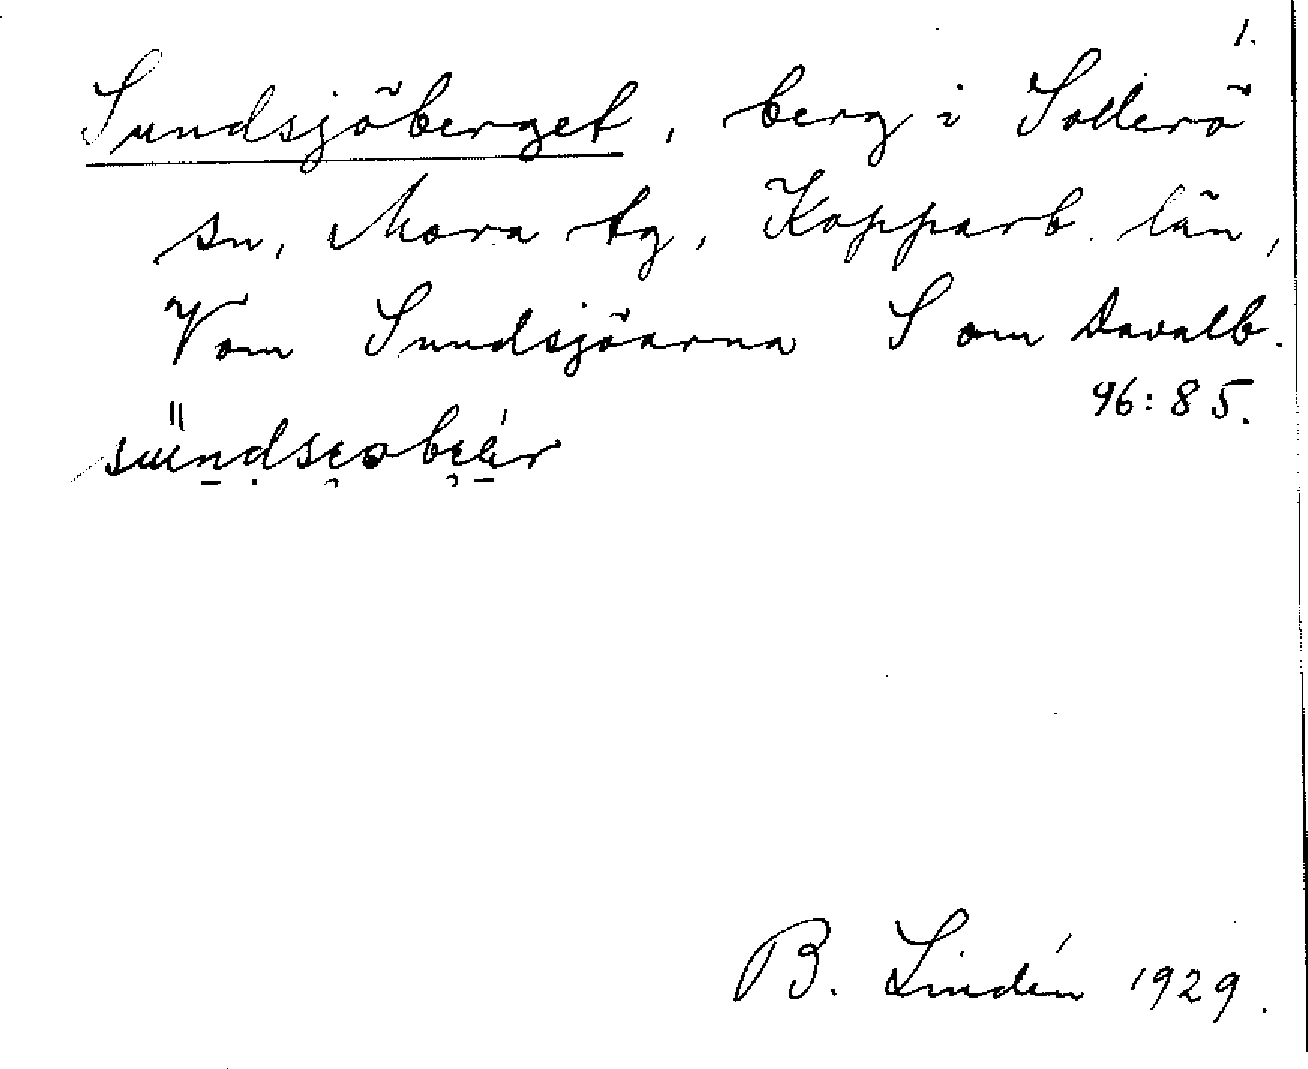 1.
Sundsjöberget, berg i Sollerö
sn, Mora tg, Kopparb. län,
V om Sundsjöarna S om Davalb.
96:85.
B. Lindén 1929.